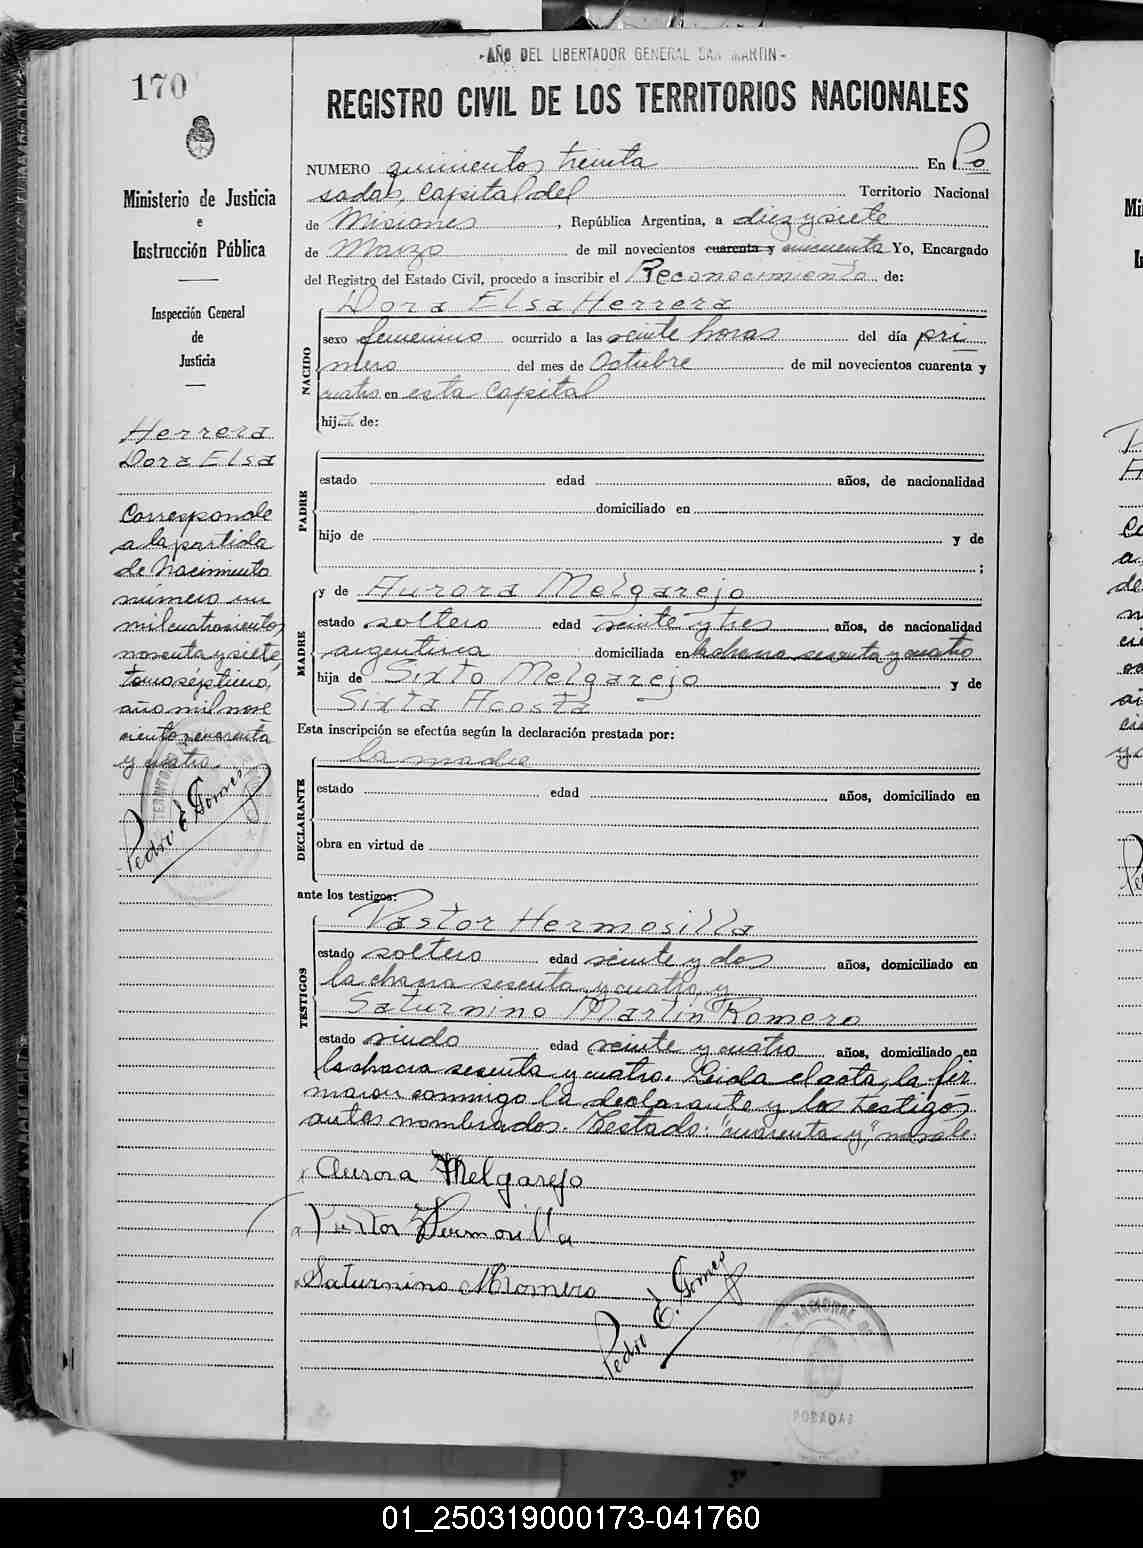 -AÑO DEL LIBERTADOR GENERAL SAN MARTIN-
170
REGISTRO CIVIL DE LOS TERRITORIOS NACIONALES
Ministerio de Justicia
e
Instrucción Pública
Inspección General
de
Justicia
Herrera
Dora Elsa
Corresponde
a la partida
de Nacimiento
número un
mil cuatrocientos
noventa y siete,
tomo séptimo,
año mil nove
cientos cuarenta
y cuatro.
Pedro E. Gomes
NUMERO quinientos treinta En Po
sadas, capital del Territorio Nacional
de Misiones, República Argentina, a diez y siete
de Marzo de mil novecientos cuarenta y cincuenta Yo, Encargado
del Registro del Estado Civil, procedo a inscribir el Reconocimiento de:
Dora Elsa Herrera
NACIDO
sexo femenino ocurrido a las veinte horas del día pri
mero del mes de Octubre de mil novecientos cuarenta y
cuatro en esta capital
hija de:
PADRE
estado edad años, de nacionalidad
domiciliado en
hijo de y de
;
MADRE
y de Aurora Melgarejo
estado soltera edad veinte y tres años, de nacionalidad
argentina domiciliada en la chacra sesenta y cuatro
hija de Sixto Melgarejo y de
Sixta Acosta
Esta inscripción se efectúa según la declaración prestada por:
DECLARANTE
la madre
estado edad años, domiciliado en
obra en virtud de
ante los testigos:
TESTIGOS
Pastor Hermosilla
estado soltero edad veinte y dos años, domiciliado en
la chacra sesenta y cuatro, y
Saturnino Martin Romero
estado viudo edad veinte y cuatro años, domiciliado en
la chacra sesenta y cuatro. Leida el acta, la fir
maron conmigo la declarante y los testigos
antes nombrados. Testado: "cuarenta y", no vale.
Aurora Melgarejo
Pastor Hermosilla
Saturnino M Romero
Pedro E. Gomes
POSADAS
01_250319000173-041760